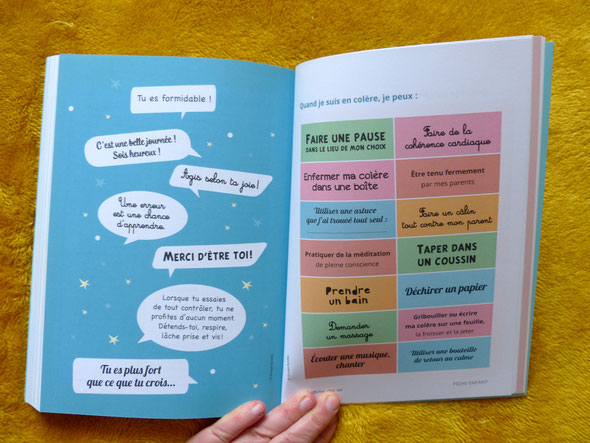 Tu es formidable !
C'est une belle journée !
Sois heureux !
Agis selon ta joie!
Une erreur
est une chance
d'apprendre.
MERCI D'ÊTRE TOI!
Lorsque tu essaies
de tout contrôler, tu ne
profites d'aucun moment.
Détends-toi, respire,
lâche prise et vis!
Tu es plus fort
que ce que tu crois...
Quand je suis en colère, je peux :
FAIRE UNE PAUSE
DANS LE LIEU DE MON CHOIX
Faire de la
cohérence cardiaque
Enfermer ma colère
dans une boîte
Être tenu fermement
par mes parents
Utiliser une astuce
que j'ai trouvé tout seul :
Faire un câlin
tout contre mon parent
Pratiquer de la méditation
de pleine conscience
TAPER DANS
UN COUSSIN
Prendre
un bain
Déchirer un papier
Demander
un massage
Gribouiller ou écrire
ma colère sur une feuille,
la froisser et la jeter
Écouter une musique,
chanter
Utiliser une bouteille
de retour au calme
FICHE ENFANT